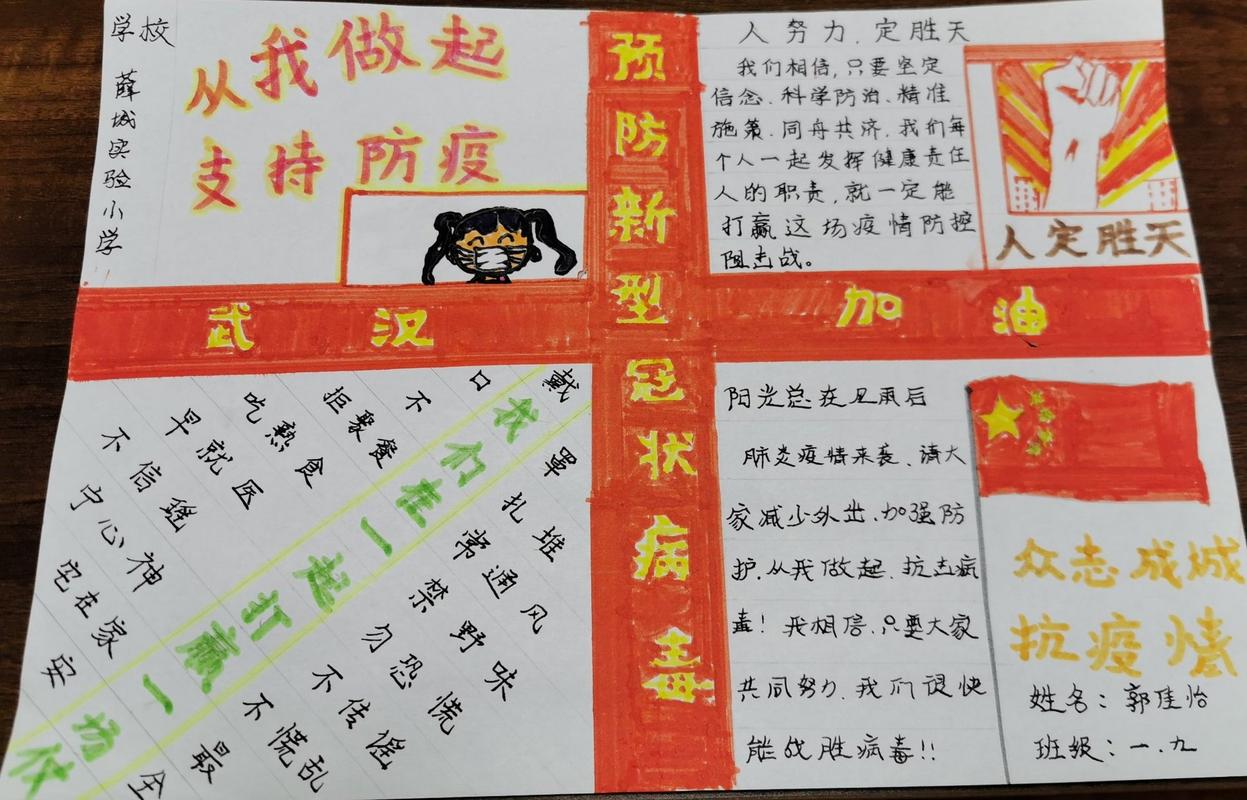 学校
薛城实验小学
从我做起
支持防疫
预防新型冠状病毒
武汉 加油
人努力.定胜天
我们相信,只要坚定
信念.科学防治.精准
施策.同舟共济.我们每
个人一起发挥健康责任
人的职责,就一定能
打赢这场疫情防控
阻击战。
人定胜天
戴
口罩
不扎堆
拒聚餐 常通风
吃熟食 禁野味
早就医 勿恐慌
不信谣 不传谣
宁心神 不慌乱
宅在家 最
安全
我们在一起打赢一场仗
阳光总在风雨后
肺炎疫情来袭、请大
家减少外出.加强防
护.从我做起.抗击病
毒!我相信.只要大家
共同努力.我们很快
能战胜病毒!!
众志成城
抗疫情
姓名:郭佳怡
班级:一.九